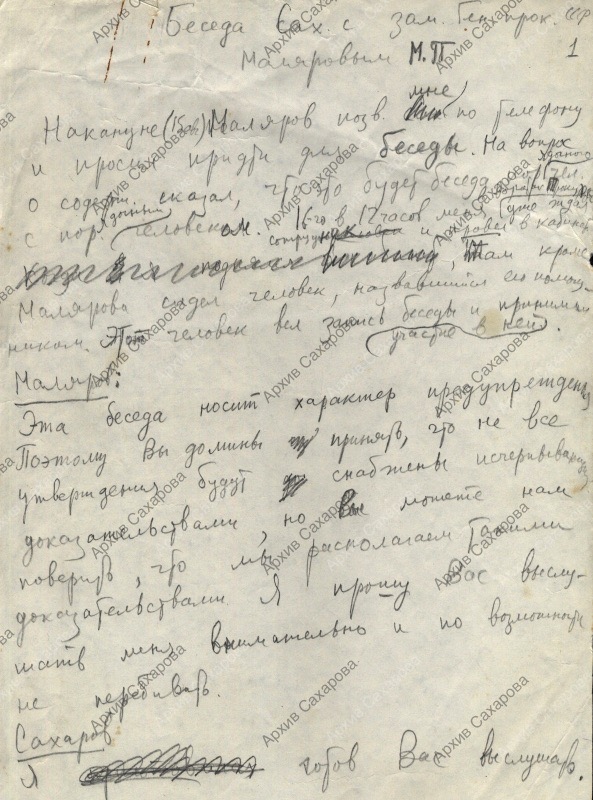 Беседа Сах. с зам. Ген. прок. СССР
Маляровым М.П.
1
Накануне (15 ) Маляров позв. мне по телефону
и просил придти для беседы. На вопрос
о содерж. сказал, что это будет беседа
с нор. человеком. 16-го в 12 часов меня уже ждал
сотрудник и провел в кабинет
Там кроме
Малярова сидел человек, назвавшийся его помощ-
ником. Этот человек вел запись беседы и принимал
участие в ней.
Маляров:
Эта беседа носит характер предупреждения
Поэтому Вы должны принять, что не все
утверждения будут снабжены исчерпывающими
доказательствами, но Вы можете нам
поверить, что мы располагаем такими
доказательствами. Я прошу Вас выслу-
шать меня внимательно и по возможности
не перебивать.
Сахаров
Я готов Вас выслушать.
Архив Сахарова